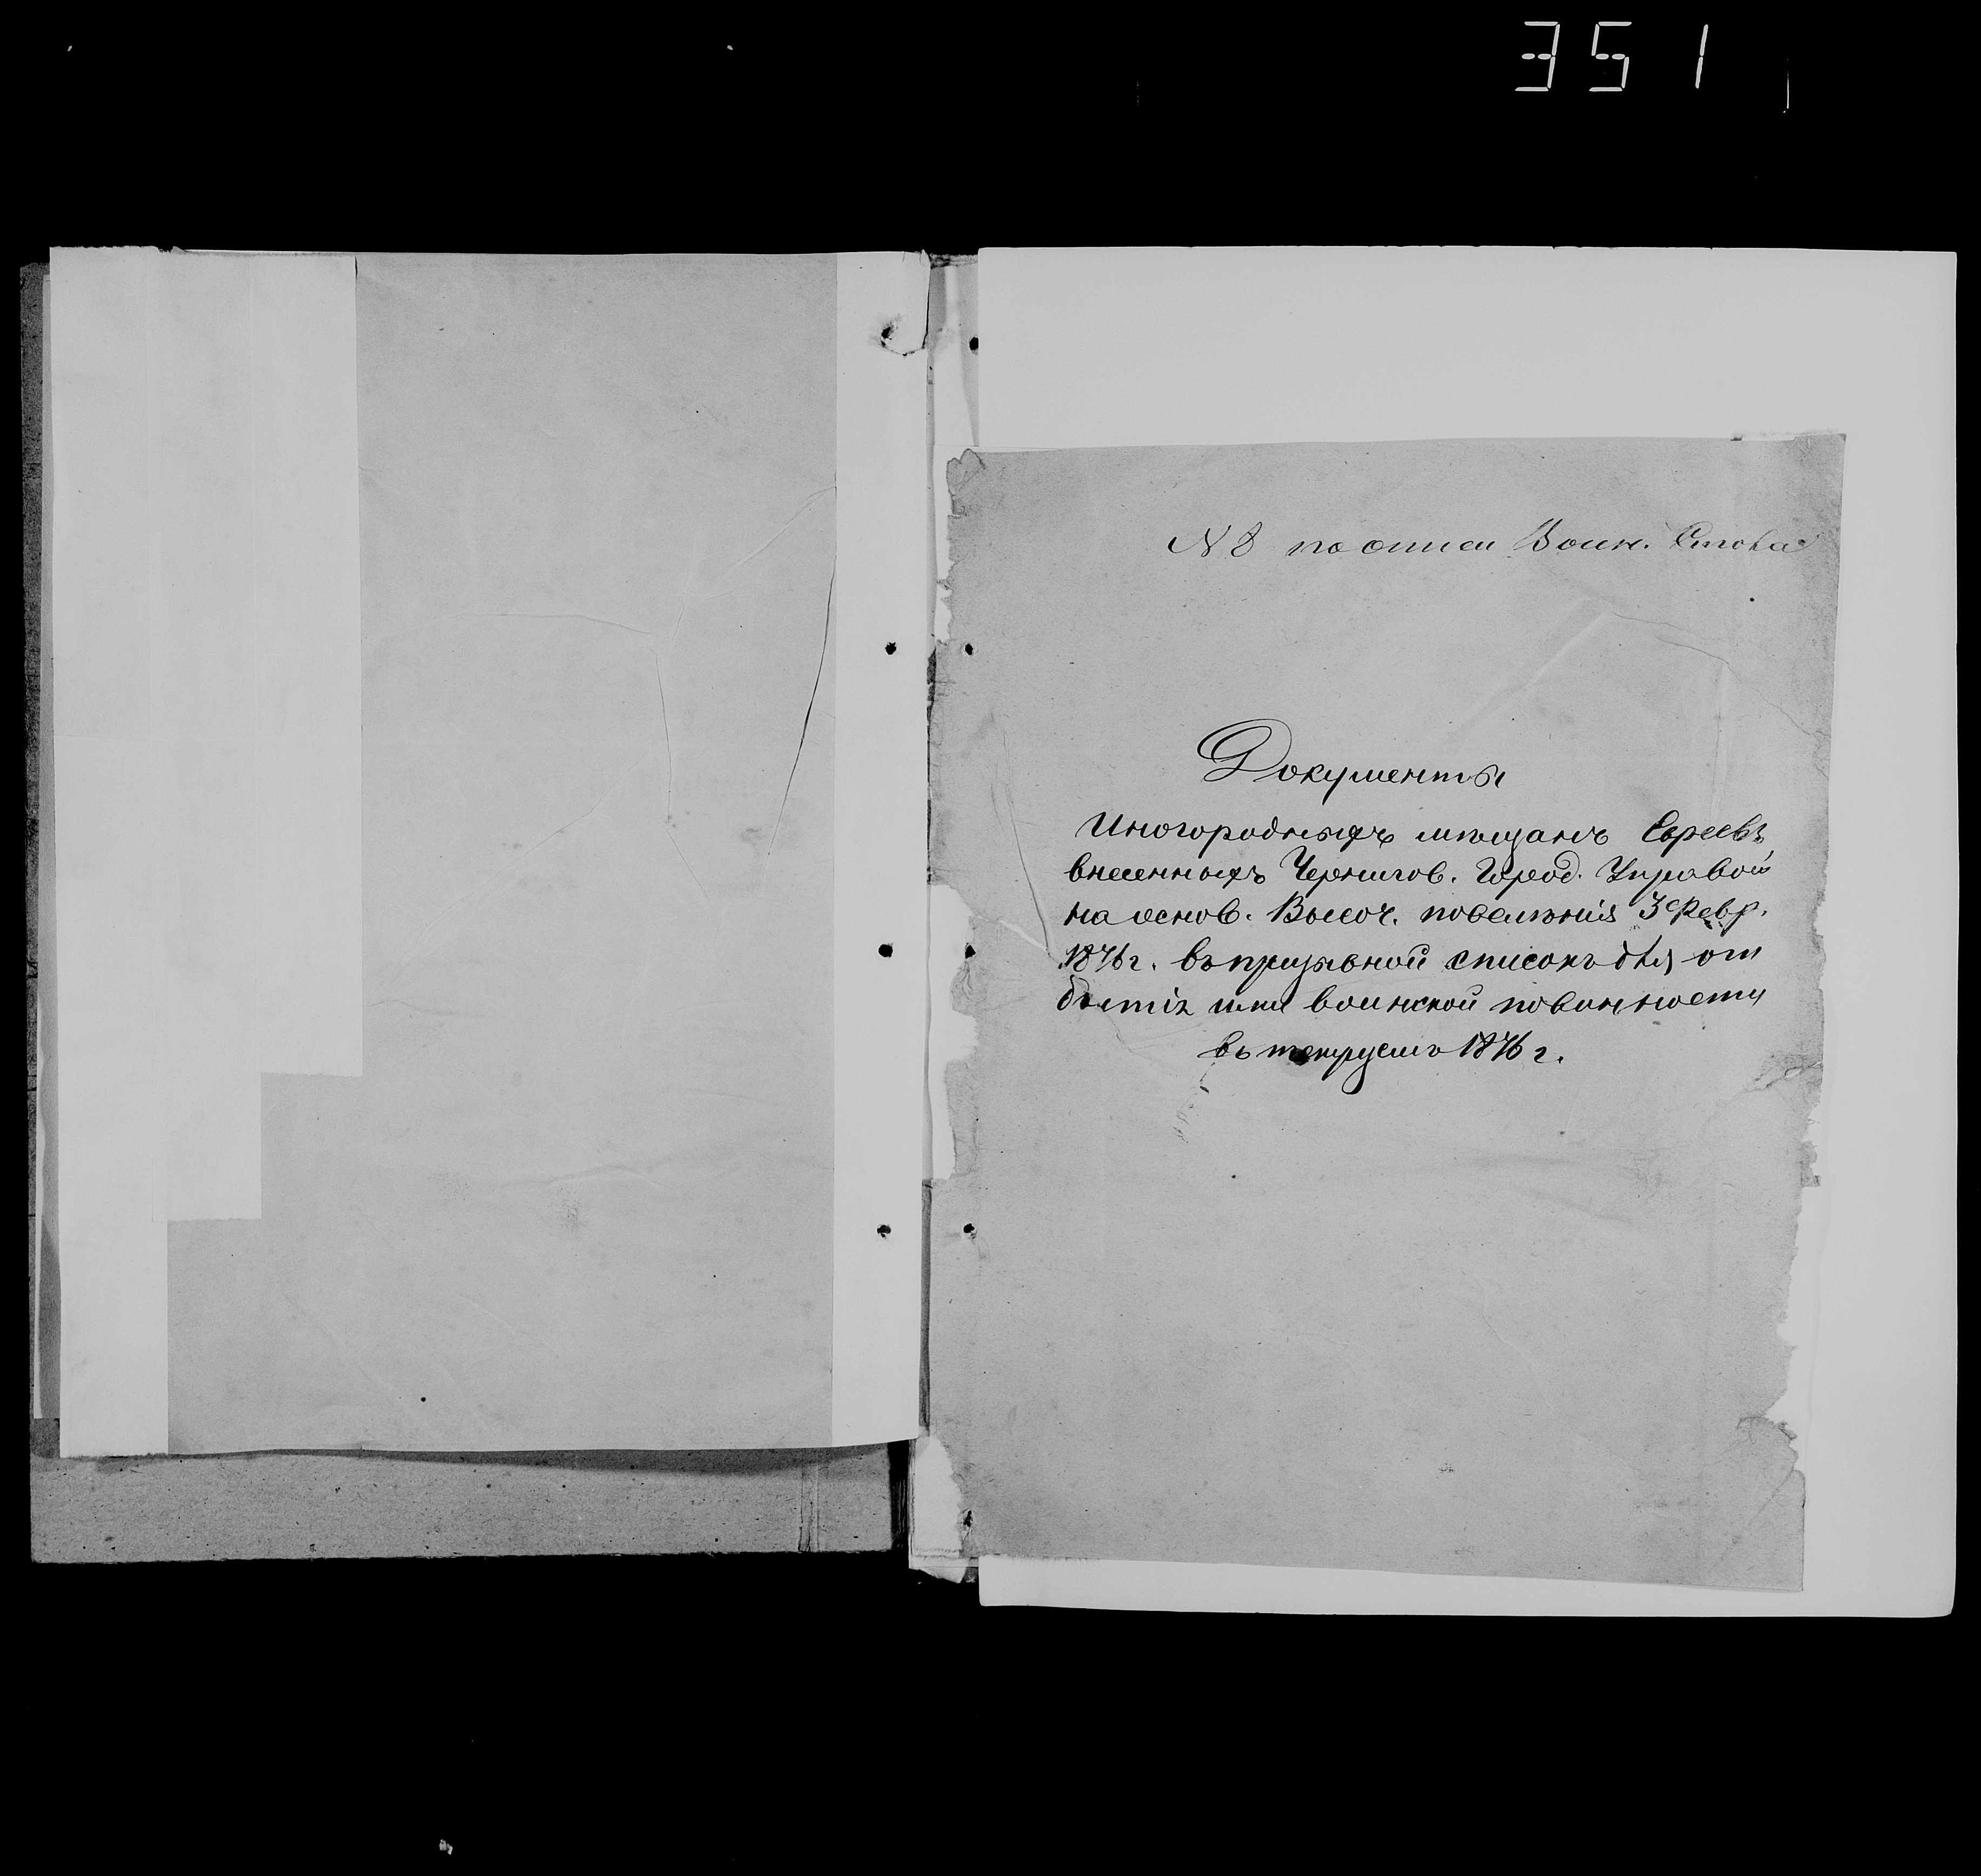 351
№ 8 по описи Воин. Стола
Документы
Иногородныхъ мѣщанъ Евреевъ,
внесенныхъ Чернигов. Город. Управой
на основ. Высоч. повелѣнія 3 Февр.
1876 г. въ призывной списокъ для от
бытія ими воинской повинности
въ текущемъ 1876 г.